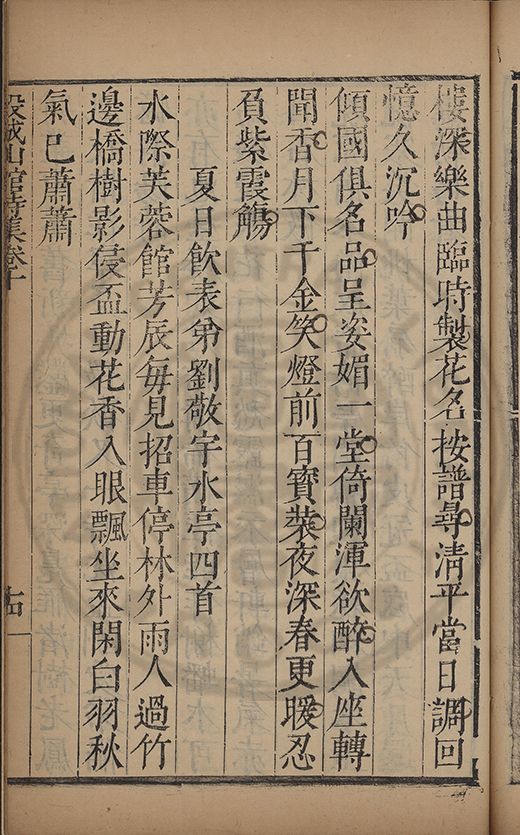 樓深樂曲臨時製花名按譜尋清平當日調回
憶久沉吟
傾國俱名品呈姿媚一堂倚闌渾欲醉入座轉
聞香月下千金笑燈前百寶裝夜深春更暖忍
負紫霞觴
夏日飲表弟劉敬宇水亭四首
水際芙蓉館芳辰每見招車停林外雨人過竹
邊橋樹影侵盃動花香入眼飄坐來閑白羽秋
氣已蕭蕭
穀城山館詩集卷十
十四